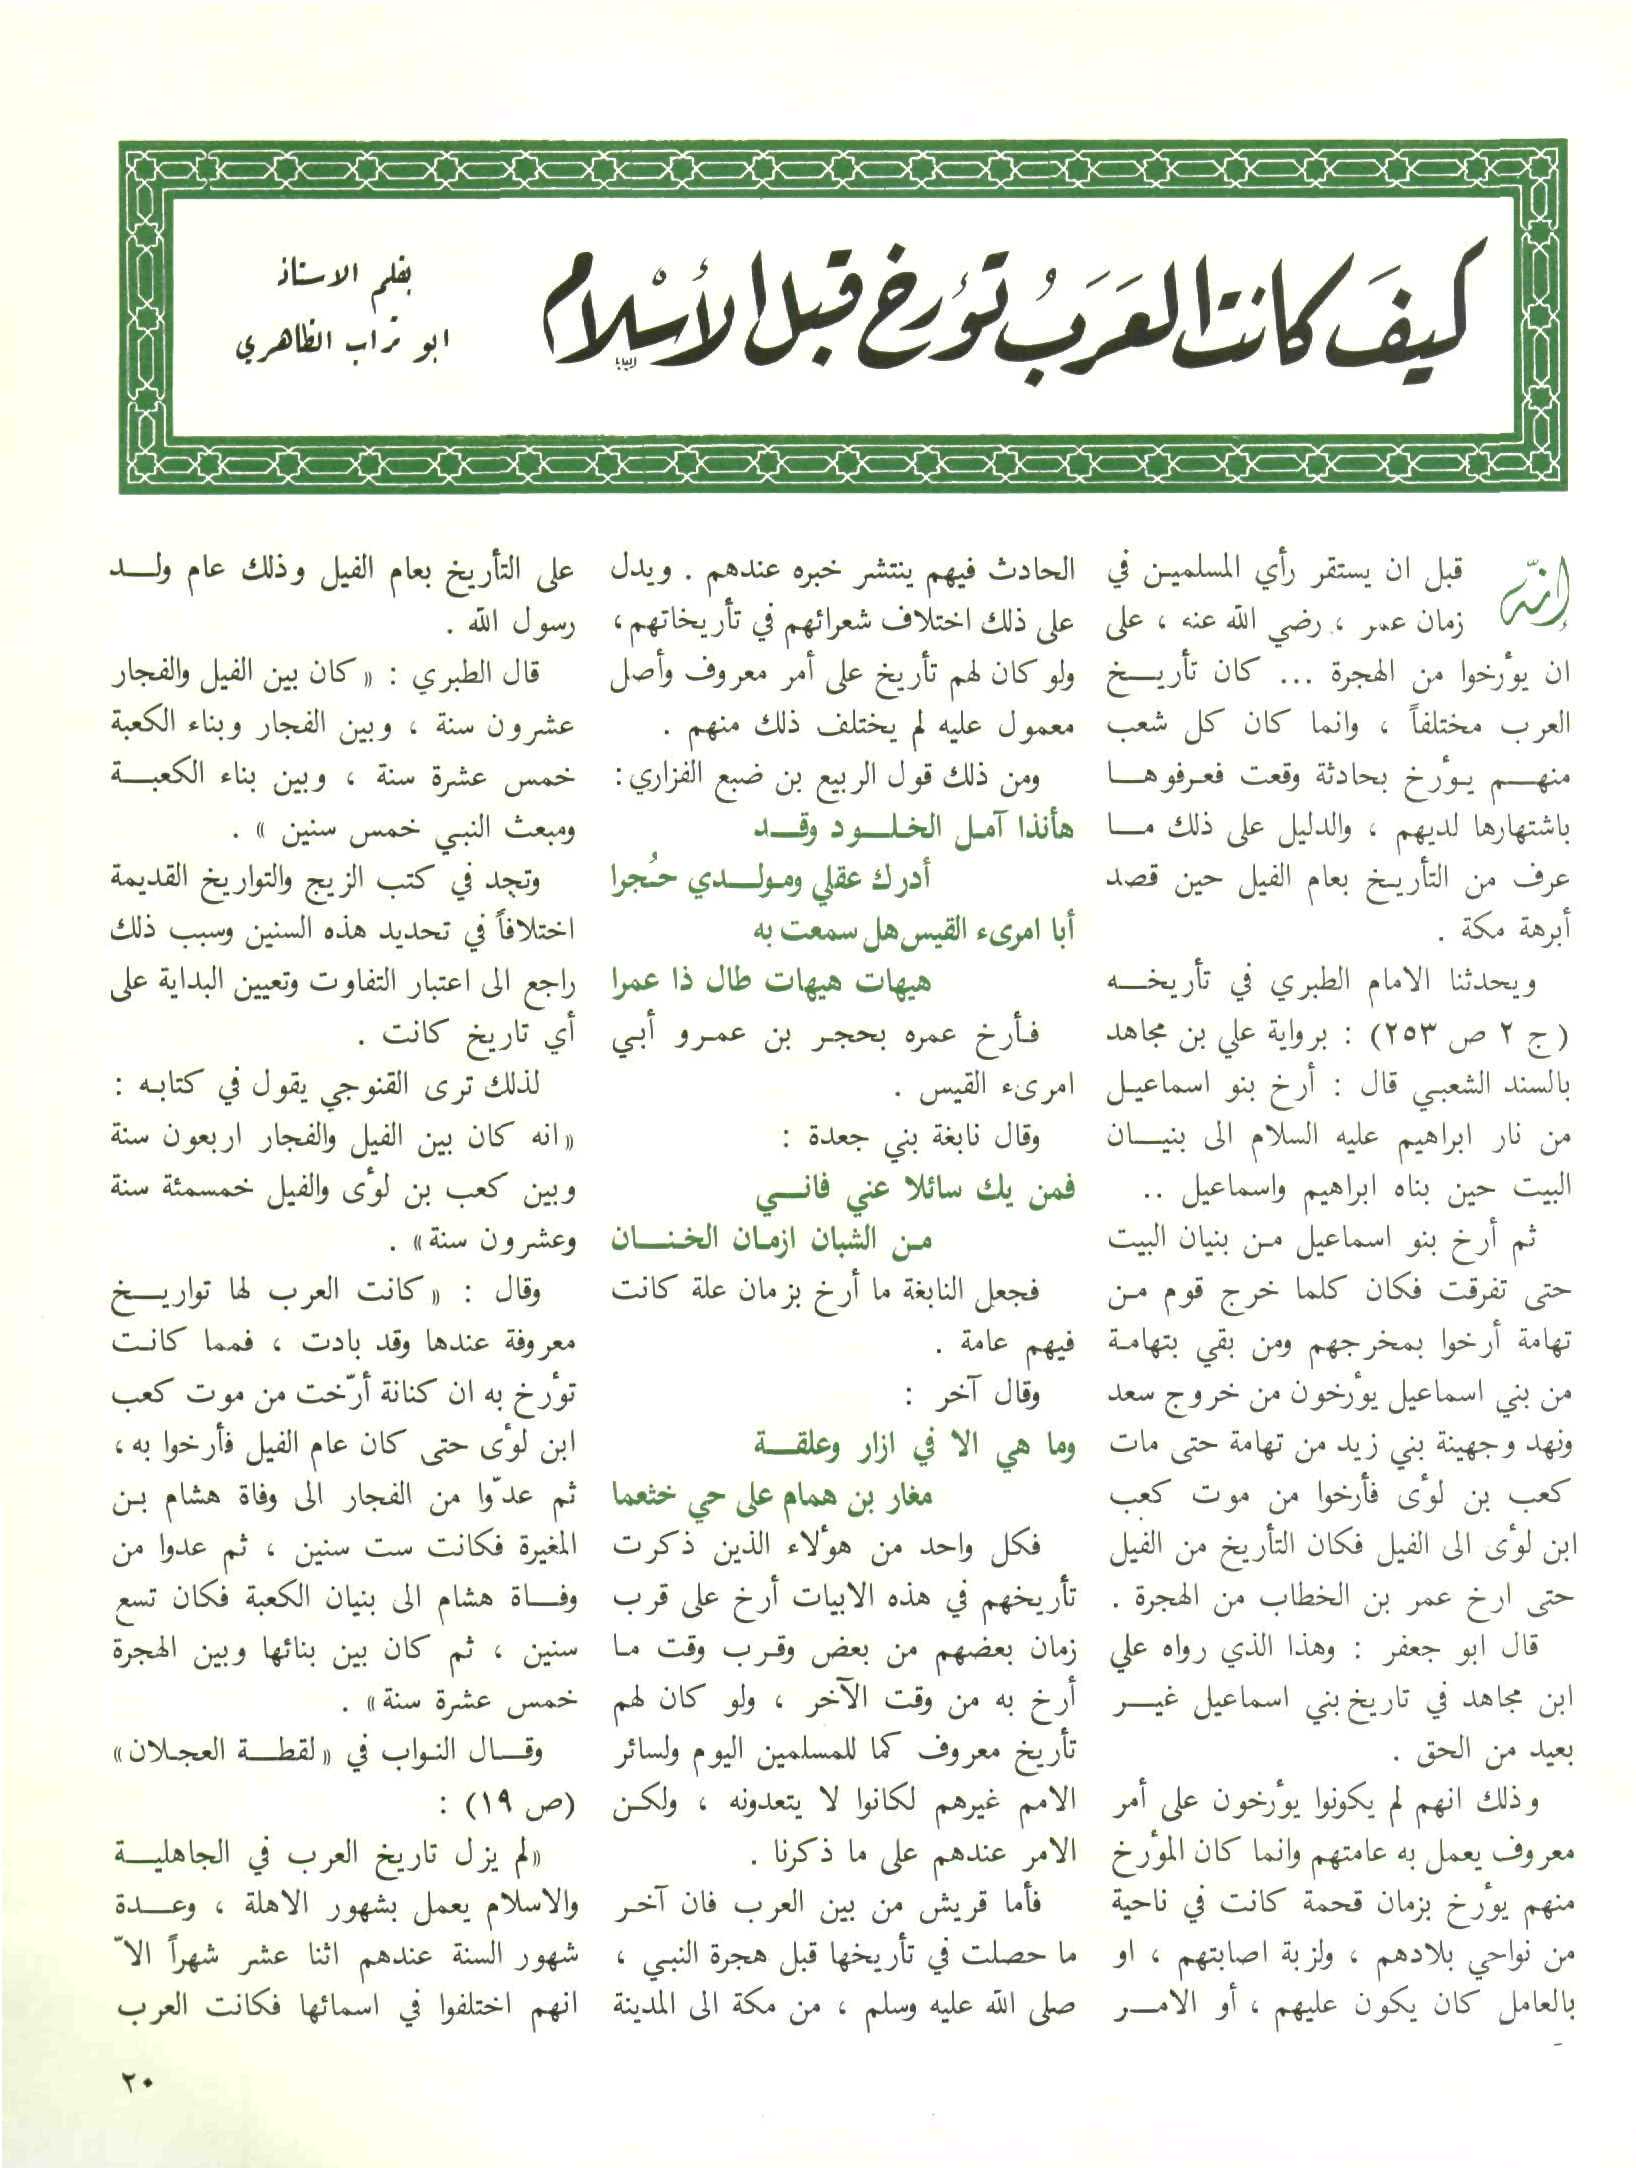 كيفَ كانت العَرَبُ تؤرخ قبل الأسْلام
بقلم الاستاذ
ابو تراب الظاهري
إنّه قبل ان يستقر رأي المسلمين في
زمان عمر ، رضي الله عنه ، على
ان يؤرخوا من الهجرة ... كان تأريـــخ
العرب مختلفاً ، وانما كان كل شعب
منهـــم يؤرخ بحادثة وقعت فعرفوهـــا
باشتهارها لديهم ، والدليل على ذلك مـــا
عرف من التأريخ بعام الفيل حين قصد
أبرهة مكة .
ويحدثنا الامام الطبري في تأريخـــه
(ج ٢ ص ٢٥٣) : برواية علي بن مجاهد
بالسند الشعبي قال : أرخ بنو اسماعيـل
من نار ابراهيم عليه السلام الى بنيـــان
البيت حين بناه ابراهيم واسماعيل ..
ثم أرخ بنو اسماعيل مـن بنيان البيت
حتى تفرقت فكان كلما خرج قوم مـن
تهامة أرخوا بمخرجهم ومن بقي بتهامـة
من بني اسماعيل يؤرخون من خروج سعد
ونهد وجهينة بني زيد من تهامة حتى مات
كعب بن لؤى فأرخوا من موت كعب
ابن لؤى الى الفيل فكان التأريخ من الفيل
حتى ارخ عمر بن الخطاب من الهجرة .
قال ابو جعفر : وهذا الذي رواه علي
ابن مجاهد في تاريخ بني اسماعيل غيـــر
بعيد من الحق .
وذلك انهم لم يكونوا يؤرخون على أمر
معروف يعمل به عامتهم وانما كان المؤرخ
منهم يؤرخ بزمان قحمة كانت في ناحية
من نواحي بلادهم ، ولزبة اصابتهم ، او
بالعامل كان يكون عليهم ، أو الامـــر
الحادث فيهم ينتشر خبره عندهم . ويدل
على ذلك اختلاف شعرائهم في تأريخاتهم،
ولو كان لهم تأريخ على أمر معروف وأصل
معمول عليه لم يختلف ذلك منهم .
ومن ذلك قول الربيع بن ضبع الفزاري:
هأنذا آمـل الخلـــود وقـــد
أدرك عقلي ومولـــدي حُجرا
أبا امرىء القيس هل سمعت به
هيهات هيهات طال ذا عمرا
فـأرخ عمره بحجـر بن عمـرو أبـي
امرىء القيس .
وقال نابغة بني جعدة :
فمن يك سائلا عني فانـــي
مـن الشبان ازمـان الخنـــان
فجعل النابغة ما أرخ بزمان علة كانت
فيهم عامة .
وقال آخر :
وما هي الا في ازار وعلقـــة
مغار بن همام على حي خثعما
فكل واحد من هؤلاء الذين ذكرت
تأريخهم في هذه الابيات أرخ على قرب
زمان بعضهم من بعض وقـرب وقت مـا
أرخ به من وقت الآخر ، ولو كان لهم
تأريخ معروف كما للمسلمين اليوم ولسائر
الامم غيرهم لكانوا لا يتعدونه ، ولكـن
الامر عندهم على ما ذكرنا .
فأما قريش من بين العرب فان آخـر
ما حصلت في تأريخها قبل هجرة النبـي ،
صلى الله عليه وسلم ، من مكة الى المدينة
على التأريخ بعام الفيل وذلك عام ولـــد
رسول الله .
قال الطبري : «كان بين الفيل والفجار
عشرون سنة ، وبين الفجار وبناء الكعبة
خمس عشرة سنة ، وبين بناء الكعبـــة
ومبعث النبي خمس سنين » .
وتجد في كتب الزيج والتواريخ القديمة
اختلافاً في تحديد هذه السنين وسبب ذلك
راجع الى اعتبار التفاوت وتعيين البداية على
أي تاريخ كانت .
لذلك ترى القنوجي يقول في كتابـه :
«انه كان بين الفيل والفجار اربعون سنة
وبين كعب بن لؤى والفيل خمسمئة سنة
وعشرون سنة» .
وقال : «كانت العرب لها تواريـــخ
معروفة عندها وقد بادت ، فمما كانـت
تؤرخ به ان كنانة أرّخت من موت كعب
ابن لؤى حتى كان عام الفيل فأرخوا به،
ثم عدّوا من الفجار الى وفاة هشام بـن
المغيرة فكانت ست سنين ، ثم عدوا من
وفـــاة هشام الى بنيان الكعبة فكان تسع
سنين ، ثم كان بين بنائها وبين الهجرة
خمس عشرة سنة» .
وقـــال النـواب في «لقطـــة العجـلان»
(ص ١٩) :
«لم يزل تاريخ العرب في الجاهليـــة
والاسلام يعمل بشهور الاهلة ، وعـــدة
شهور السنة عندهم اثنا عشر شهراً الاّ
انهم اختلفوا في اسمائها فكانت العرب
٢٠